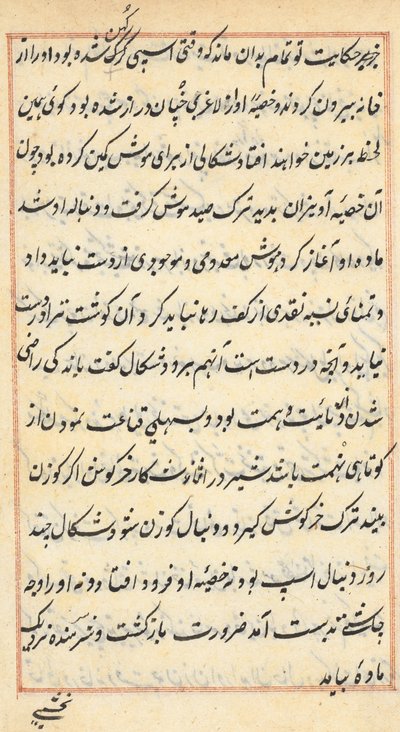 کهن
حکایت تو تمام بدان ماند که وقتی اسپی کرک شده بود او را از
خانه بیرون کردند و خصیهٔ او از لاغری چنان دراز شده بود کوئی همین
لحظه بر زمین خواهند افتاد شکالی از برای موش کمین کرده بود چون
آن خصیهٔ آویزان بدید ترک صید موش کرفت و دنباله او شد
مادهٔ او آغاز کرد موش معدومی و موجودی از دست نباید داد
و تمنای نسیه نقدی از کف رها نباید کرد آن کوشت ترا در دست
نیاید و آنچه در دست است آنهم برود شکال کفت باندکی راضی
شدن از همت بود و بسهلی قناعت نمودن از
کوتاهی نهمت باشد شیر در کار خرکوش اکر کوزن
بیند ترک خرکوش کیرد و دنبال کوزن شود شکال چند
روز دنبال اسپ بود نه خصیهٔ او فرود افتاد و نه او را وجه
بدست آمد ضرورت بازکشت و شرمنده نزدیک
مادهٔ بیامد
نخشبی